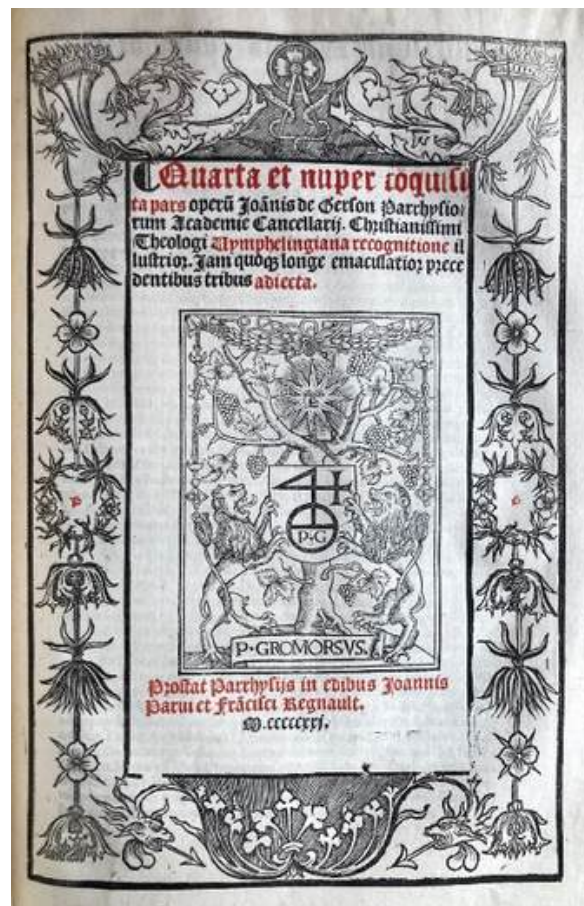 Quarta et nuper coquisi
ta pars operū Joānis de Gerson Parrhysioꝝ
rum Academie Cancellarij. Christianissimi
Theologi Uymphelingiana recognitione il
lustrioꝝ. Jam quoqꝫ longe emaculatioꝝ prece
dentibus tribus adiecta.
4
P·G
P·GROMORSVS.
Prostat Parrhysijs in edibus Joannis
Parui et Frācisci Regnault.
M.cccccxxj.